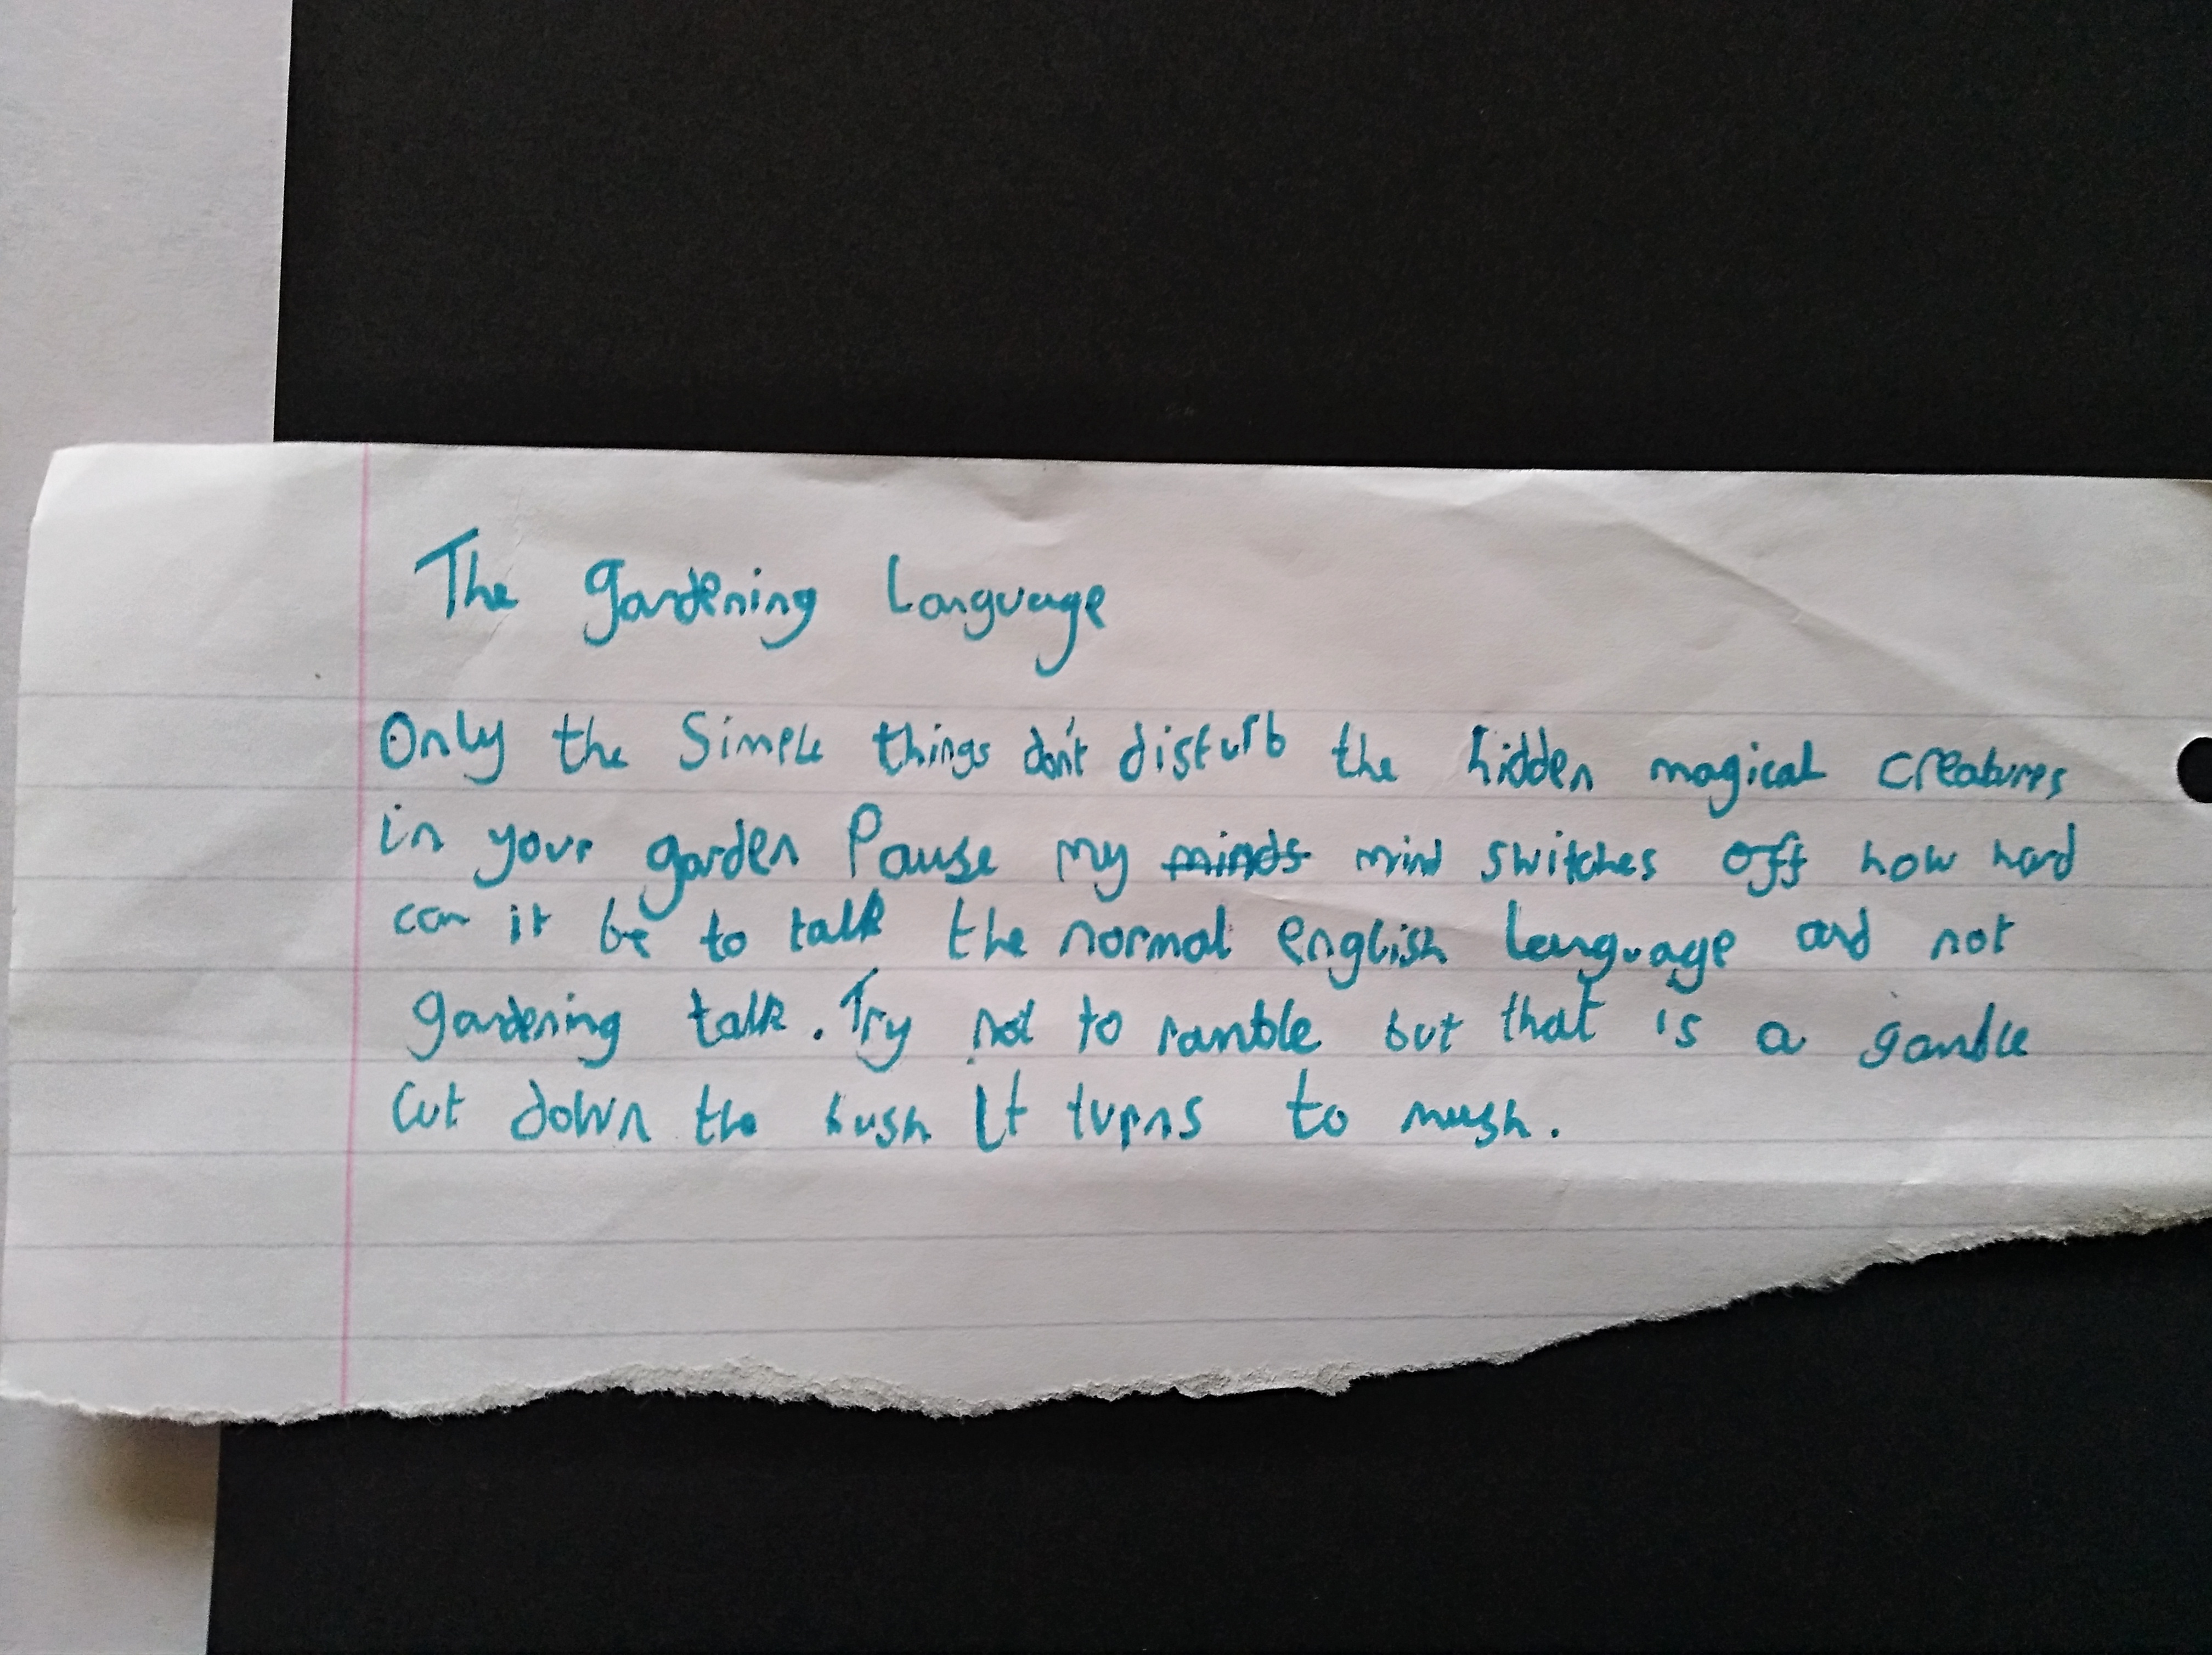 The gardening Language
Only the Simple things don't disturb the hidden magical creatures
in your garden Pause my minds mind switches off how hard
can it be to talk the normal english language and not
gardening talk. Try not to ramble but that is a gamble
Cut down the bush It turns to mush.